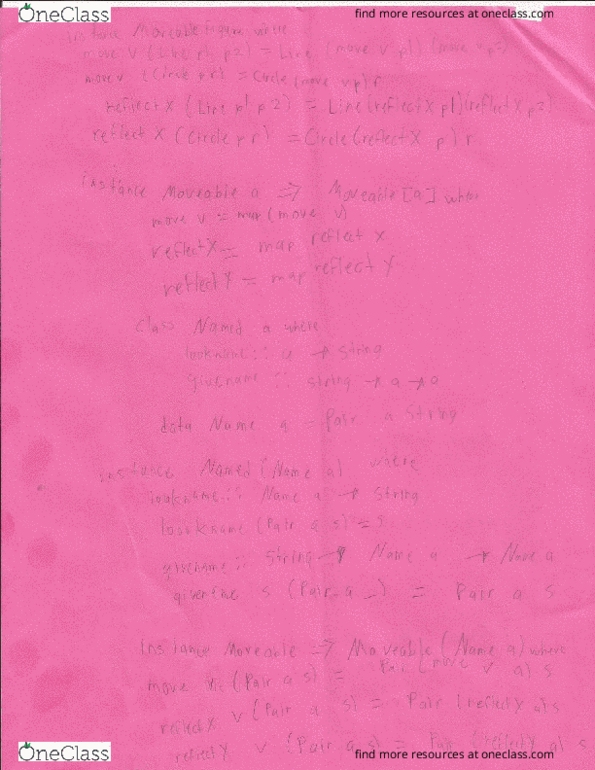 OneClass find more resources at oneclass.com
instance Moveable Figure where
move v (Line p1 p2) = Line (move v p1) (move v p2)
move v (Circle p r) = Circle (move v p) r
reflect X (Line p1 p2) = Line (reflect X p1) (reflect X p2)
reflect X (Circle p r) = Circle (reflect X p) r
instance Moveable a => Moveable [a] where
move v = map (move v)
reflect X = map reflect X
reflect Y = map reflect Y
class Named a where
lookname :: a → String
givename :: String → a → a
data Name a = Pair a String
instance Named (Name a) where
lookname :: Name a → String
lookname (Pair a s) = s
givename :: String → Name a → Name a
givename s (Pair a _) = Pair a s
instance Moveable => Moveable (Name a) where
move v (Pair a s) = Pair (move v a) s
reflect X v (Pair a s) = Pair (reflect X a) s
reflect Y v (Pair a s) = Pair (reflect Y a) s
OneClass find more resources at oneclass.com